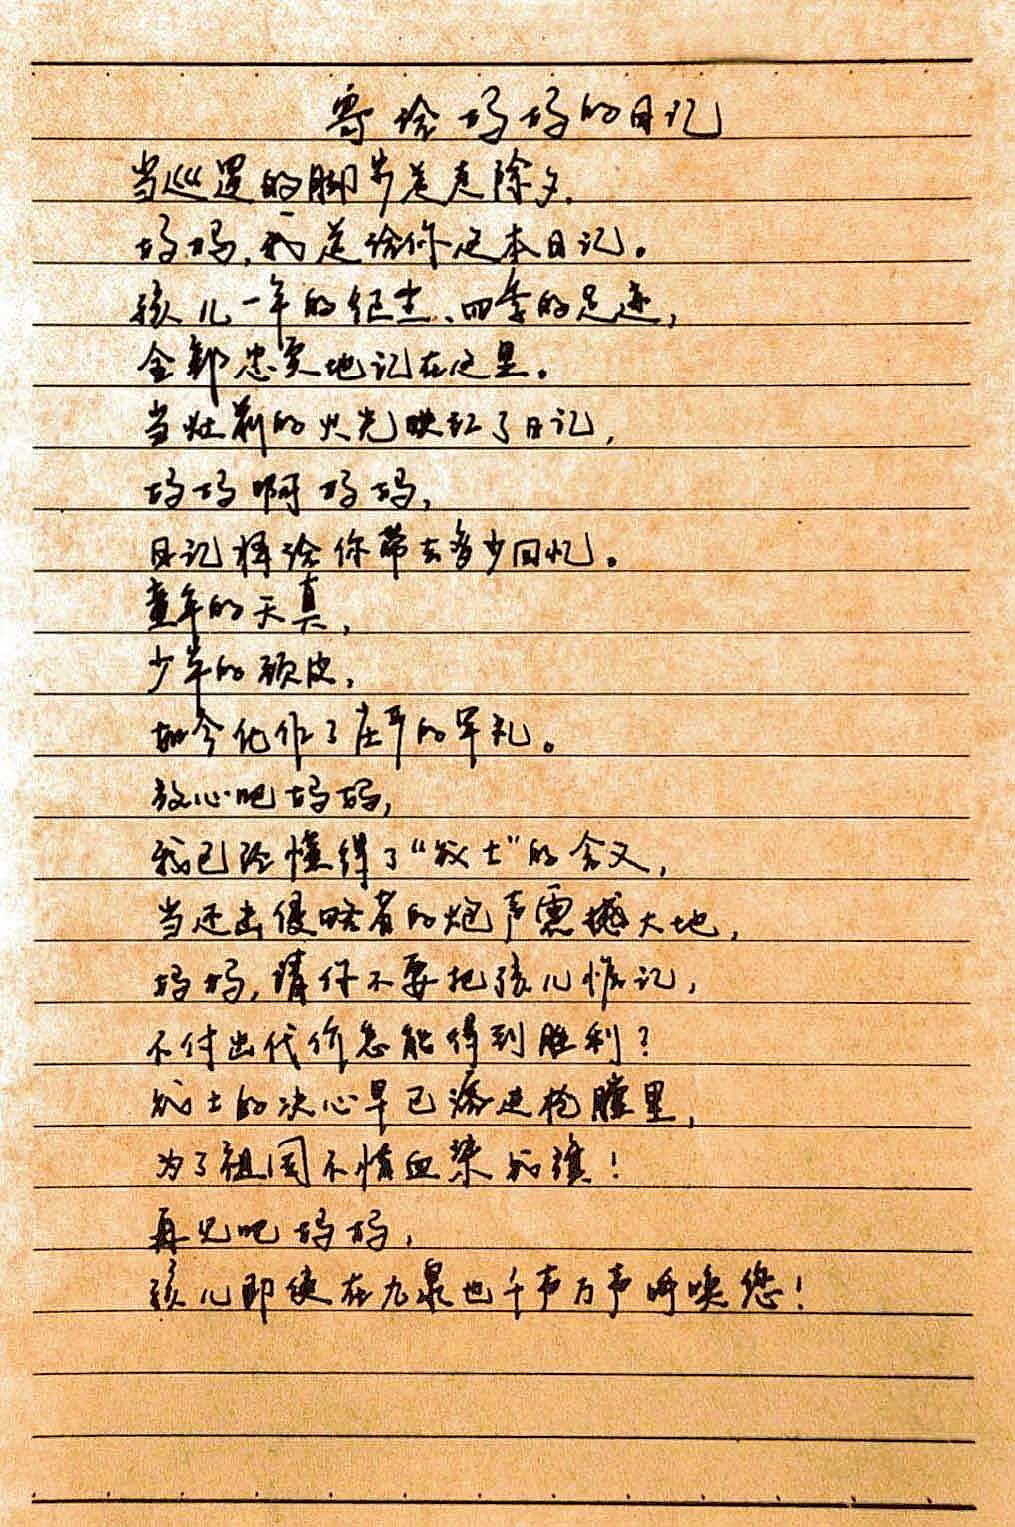 寄给妈妈的日记
当巡逻的脚步送走除夕,
妈妈,我送给你这本日记。
孩儿一年的纪念、四季的足迹,
全部忠实地记在这里。
当灶前的火光映红了日记,
妈妈啊妈妈,
日记将给你带去多少回忆。
童年的天真,
少年的顽皮,
如今化作了庄严的军礼。
放心吧妈妈,
我已经懂得了“战士”的含义,
当还击侵略者的炮声震撼大地,
妈妈,请你不要把孩儿惦记,
不付出代价怎能得到胜利?
战士的决心早已添进枪膛里,
为了祖国不惜血染战旗!
再见吧妈妈,
孩儿即使在九泉也千声万声呼唤您!